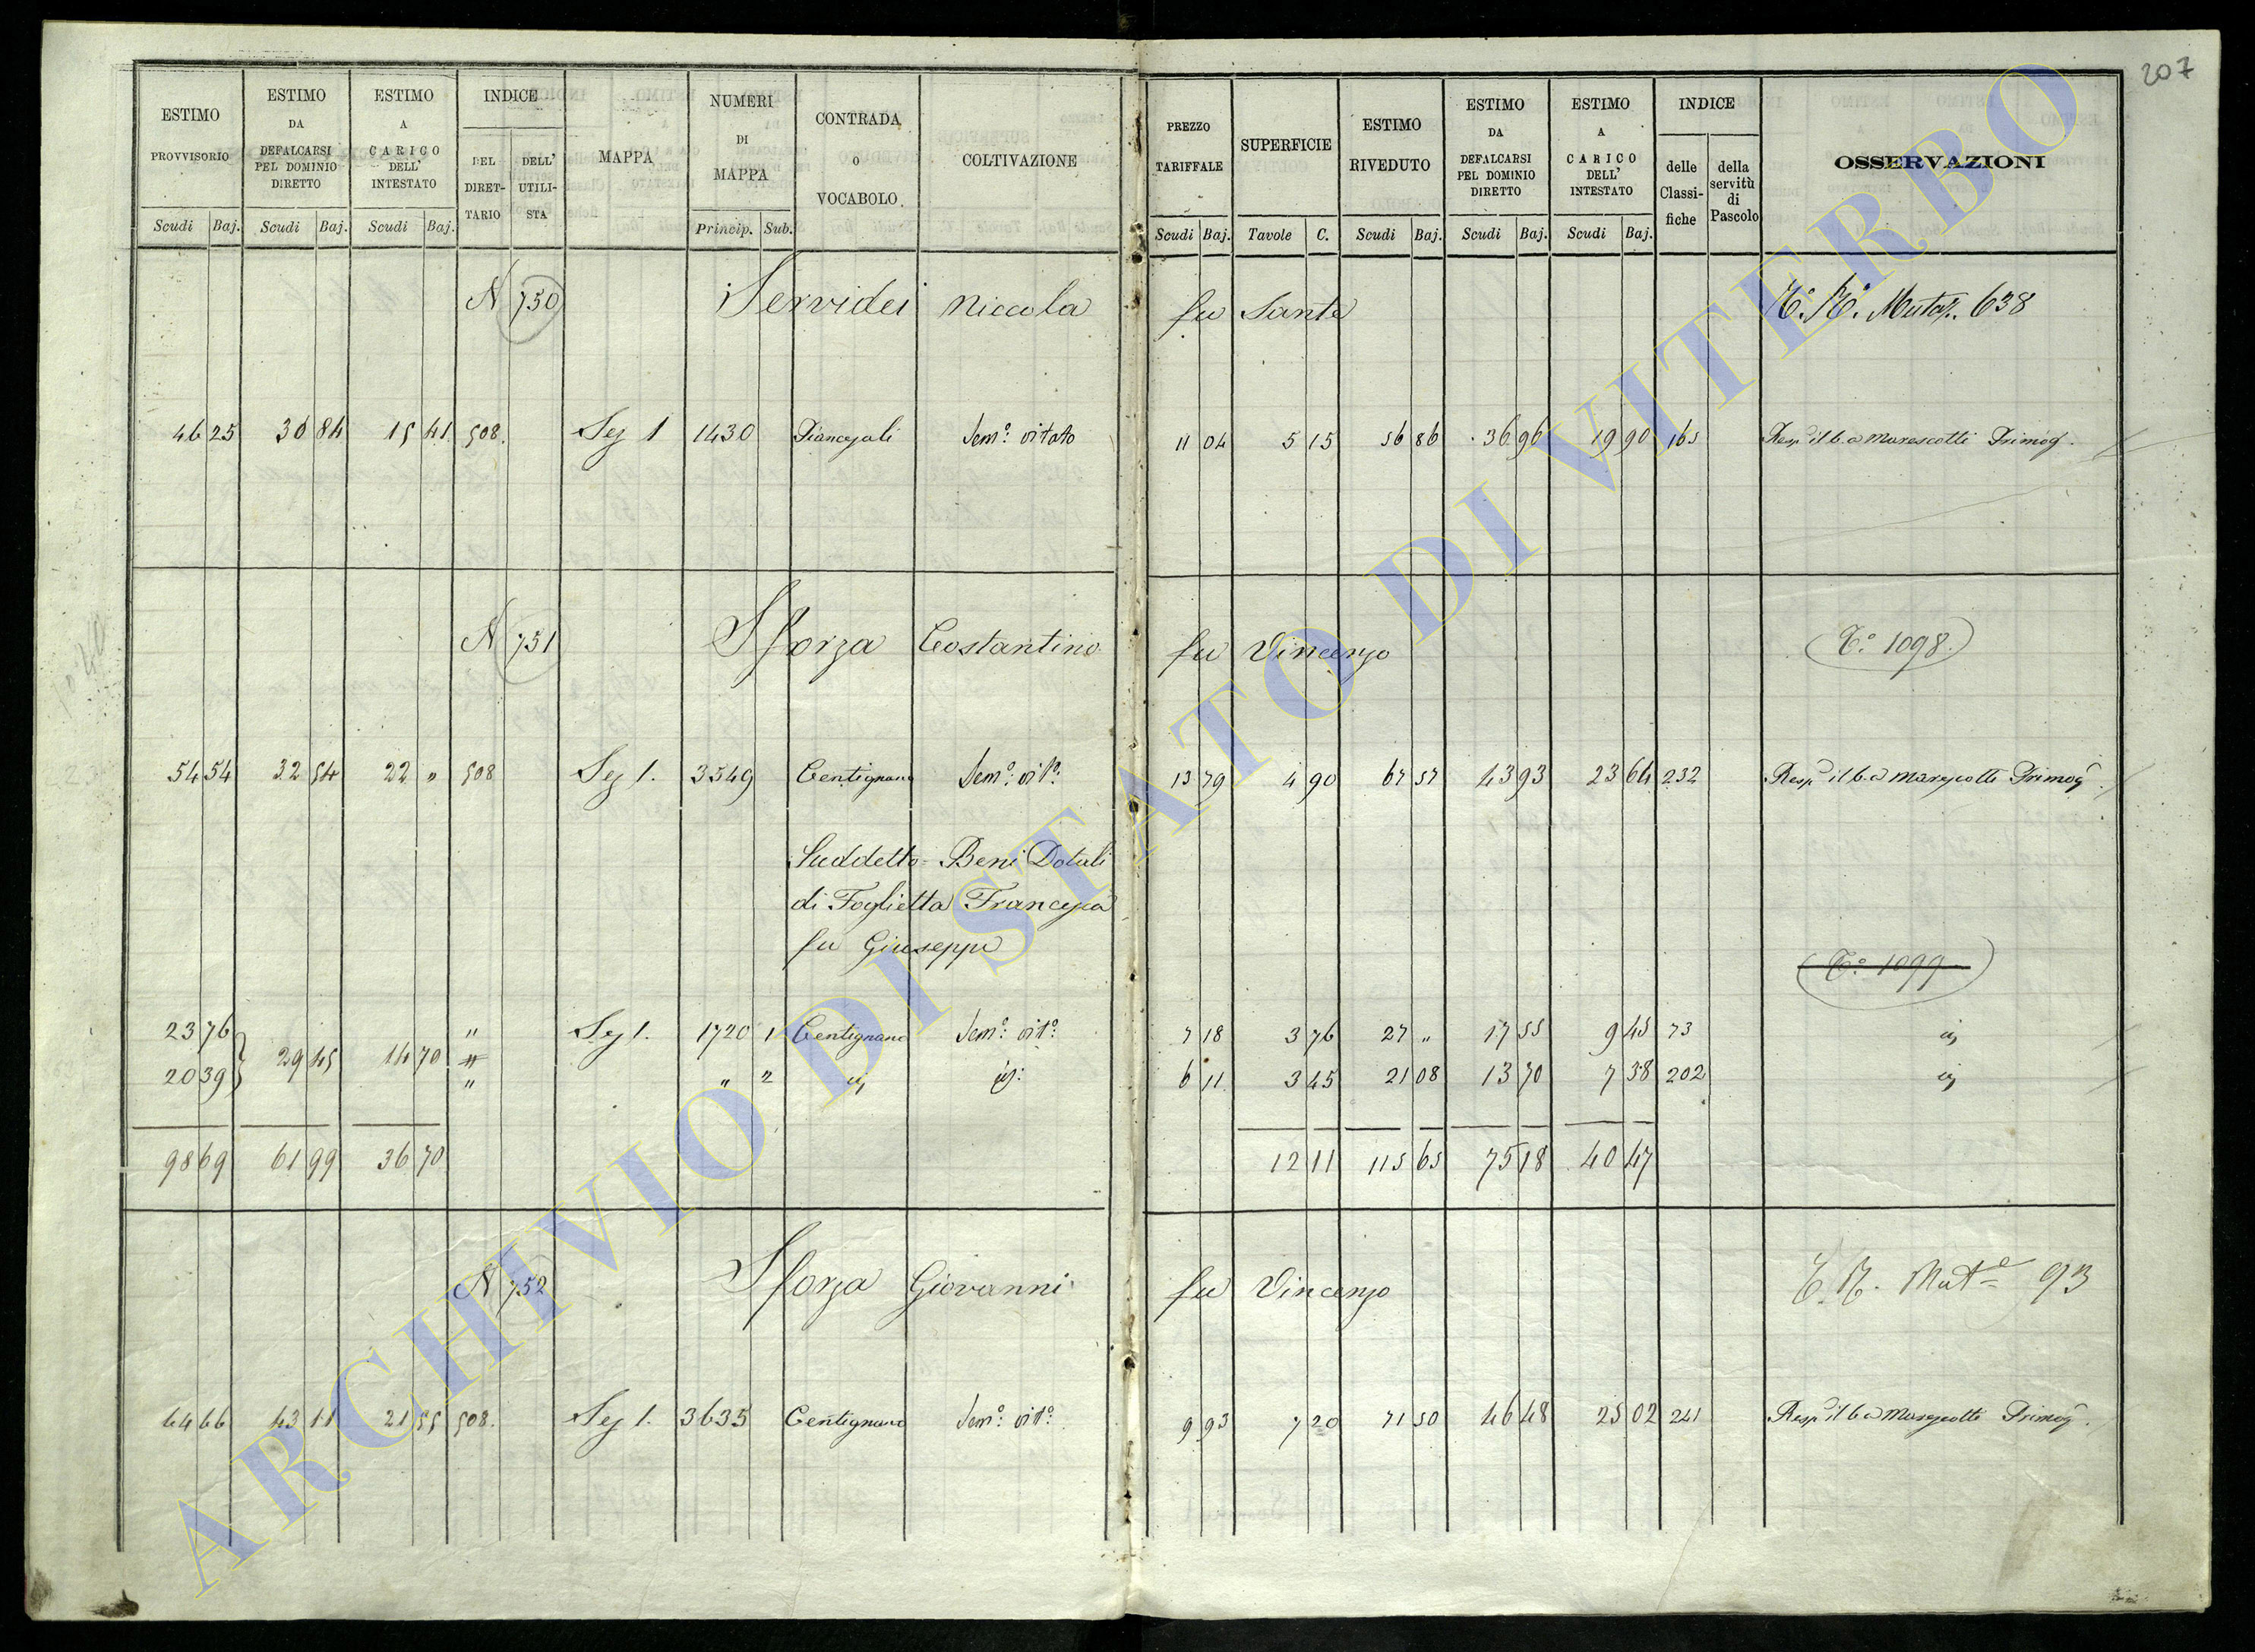 207
ESTIMO PROVVISORIO Scudi Baj.
ESTIMO DA DEFALCARSI PEL DOMINIO DIRETTO Scudi Baj.
ESTIMO A CARICO DELL' INTESTATO Scudi Baj.
INDICE DEL DIRET-TARIO DELL' UTILI-STA
MAPPA
NUMERI DI MAPPA Princip. Sub.
CONTRADA O VOCABOLO
COLTIVAZIONE
PREZZO TARIFFALE Scudi Baj.
SUPERFICIE Tavole C.
ESTIMO RIVEDUTO Scudi Baj.
ESTIMO DA DEFALCARSI PEL DOMINIO DIRETTO Scudi Baj.
ESTIMO A CARICO DELL' INTESTATO Scudi Baj.
INDICE delle Classi-fiche della servitù di Pascolo
OSSERVAZIONI
N 750 Servidei Niccola fu Sante Mutaz. 638
46 25 30 84 15 41 508. Sez 1 1430 Sem.º vitato 11 04 5 15 56 86 36 96 19 90 165 Resp. il b. a Marescotti Primog.
N 751 Sforza Costantino fu Vincenzo T.º 1098.
54 54 32 54 22 " 508 Sez 1. 3549 Centignano Sem.º vit.º 13 79 4 90 67 57 43 93 23 64 232 Resp. il b. a Marescotti Primog.
Suddetto = Beni Dotali
di Foglietta Francesca
fu Giuseppe
T.º 1099
23 76 " Sez 1. 1720 1 Centignano Sem.º vit.º 7 18 3 76 27 " 17 55 9 45 73 id
29 45 14 70 "
20 39 " " 2 id id: 6 11 3 45 21 08 13 70 7 38 202 id
98 69 61 99 36 70 12 11 115 65 75 18 40 47
N 752 Sforza Giovanni fu Vincenzo Mut.e 93
64 66 43 11 21 55 508. Sez 1. 3635 Centignano Sem.º vit.º 9 93 7 20 71 50 46 48 25 02 241 Resp. il b. a Marescotti Primog.
ARCHIVIO DI STATO DI VITERBO